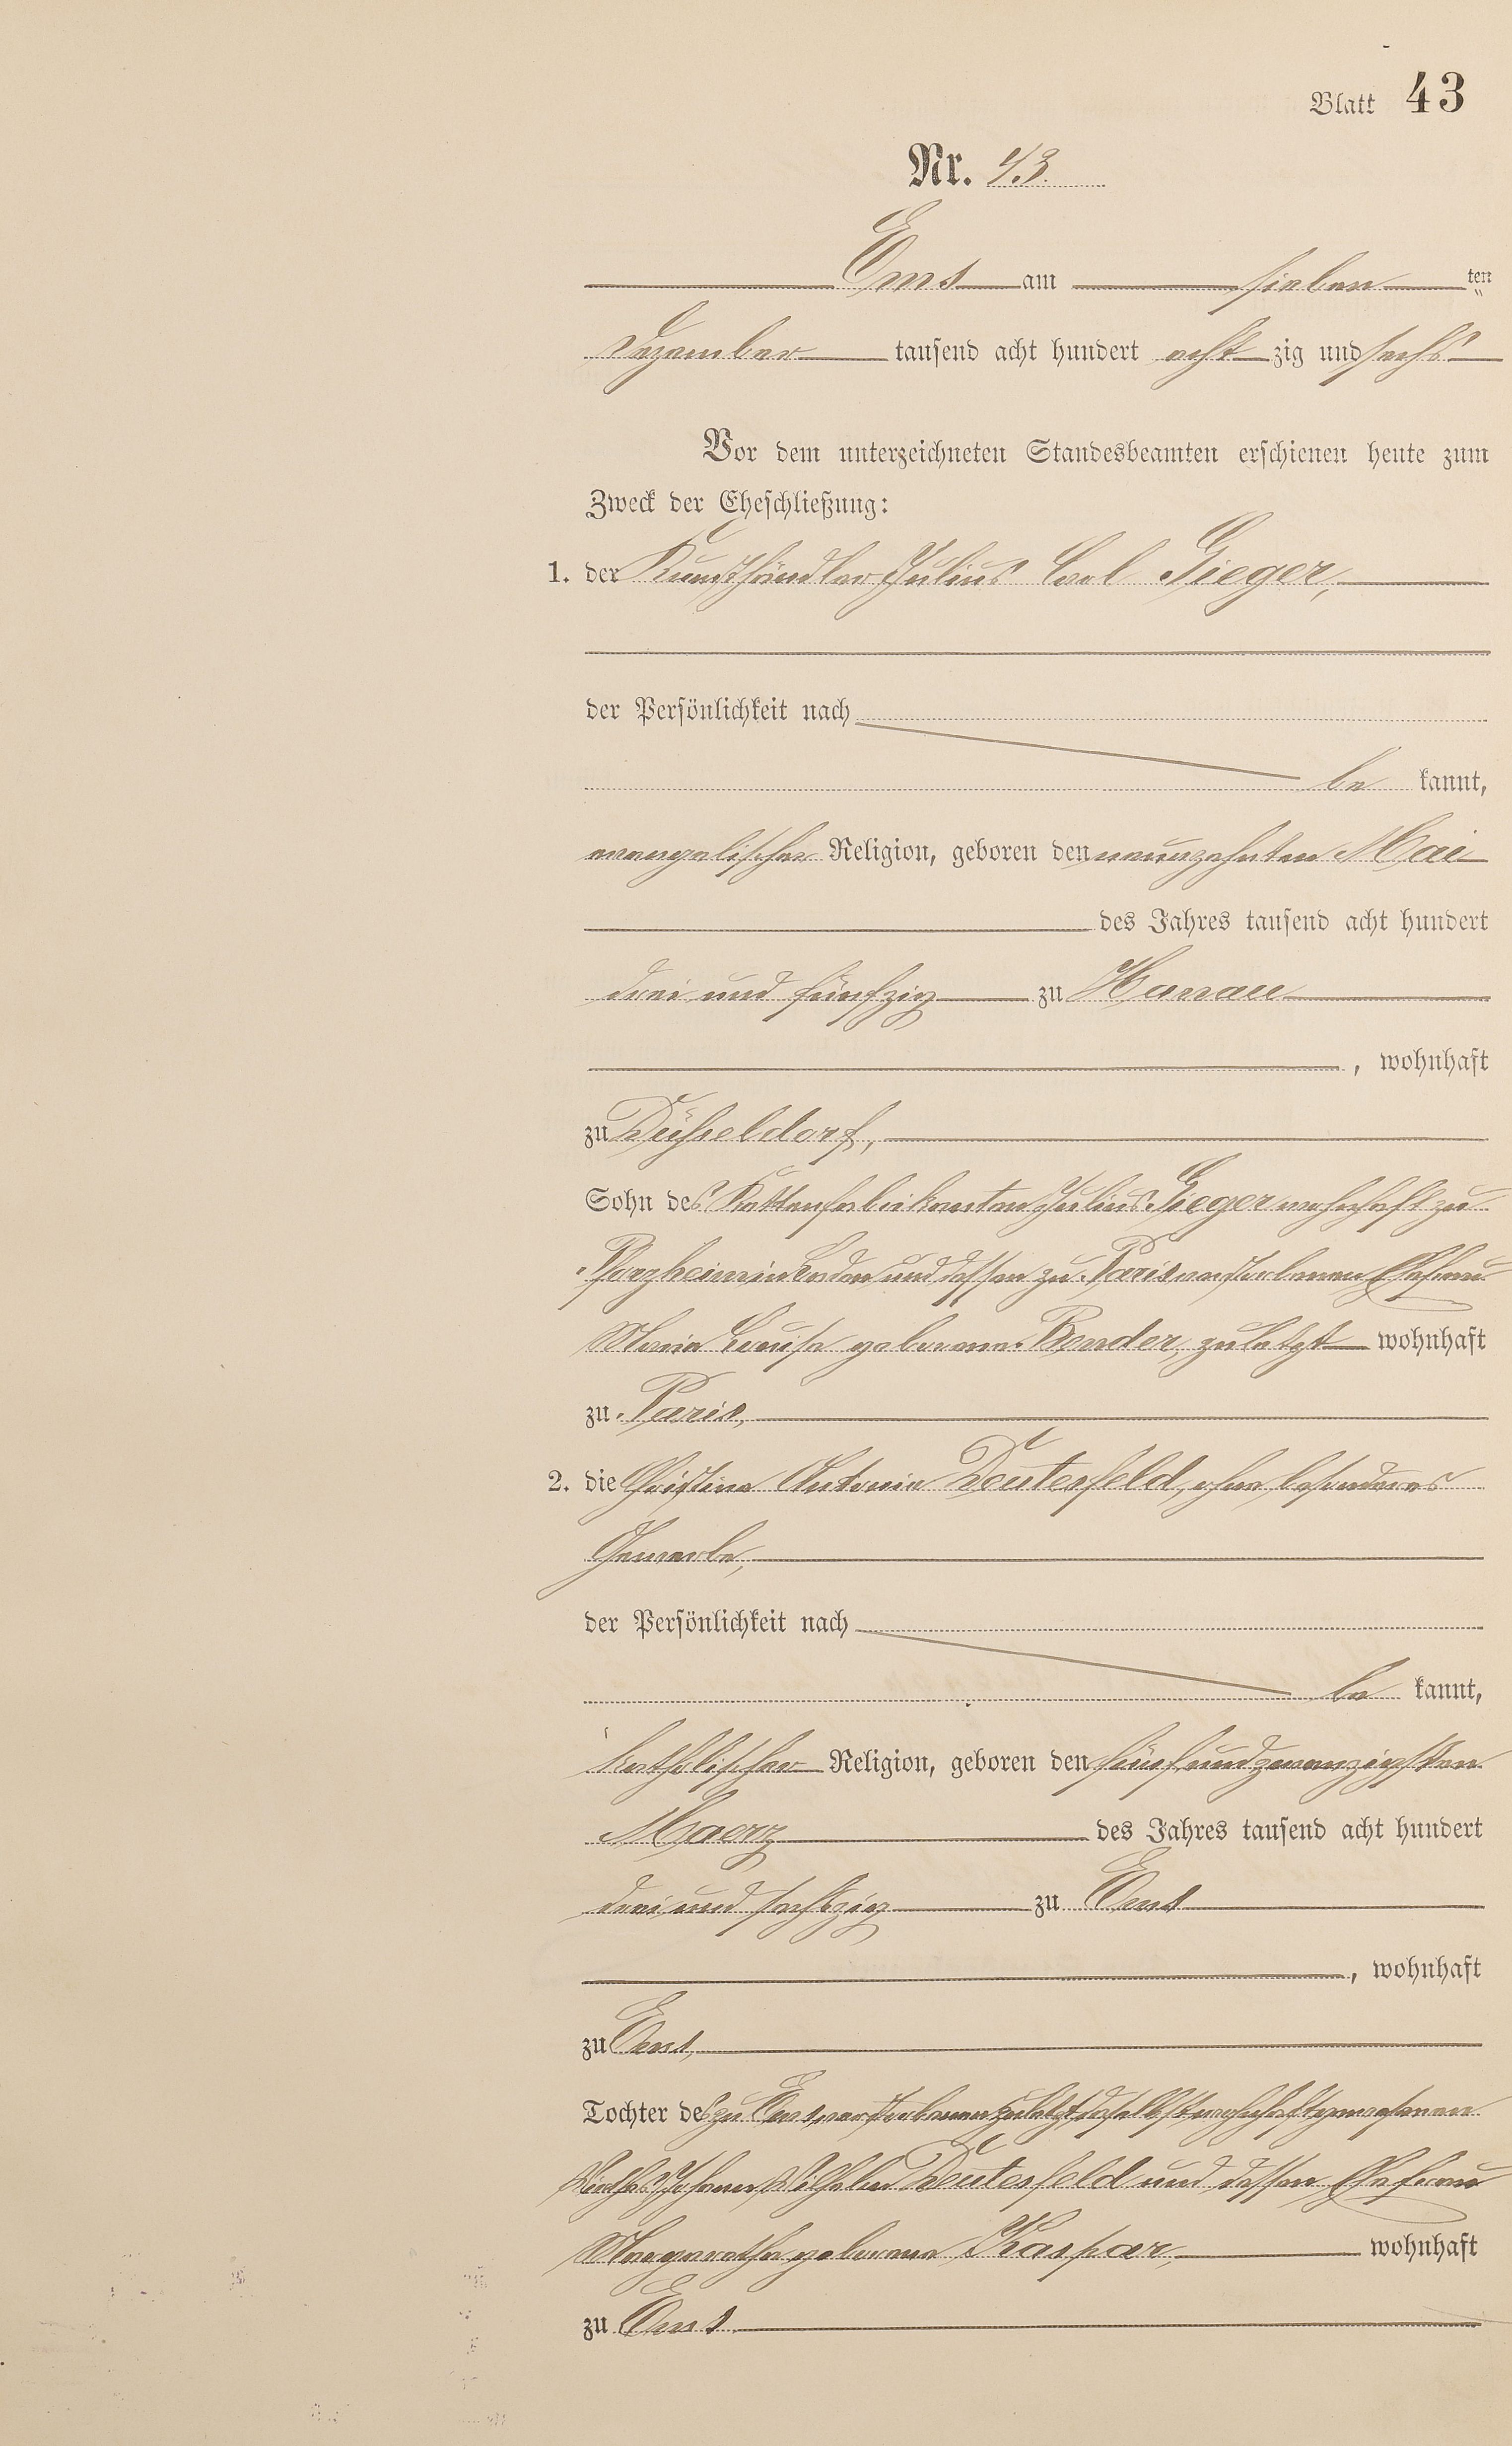 Blatt 43
Nr. 43.
Ems am sieben ten
Dezember tausend acht hundert acht zig und sechs
Vor dem unterzeichneten Standesbeamten erschienen heute zum
Zweck der Eheschließung:
1. der Kunsthändler Julius Carl Gieger,
der Persönlichkeit nach
be kannt,
evangelischer Religion, geboren den neunzehnten Mai
des Jahres tausend acht hundert
drei und fünfzig zu Hanau
, wohnhaft
zu Düsseldorf,
Sohn des Kettenfabrikanten Julius Gieger wohnhaft zu
Pforzheim in Baden und dessen zu Paris verstorbenen Ehefrau
Maria Louise geborene Bender, zuletzt wohnhaft
zu Paris,
2. die Christine Antonie Deutesfeld, ohne besonderes
Gewerbe,
der Persönlichkeit nach
be kannt,
katholischer Religion, geboren den fünfundzwanzigsten
Maerz des Jahres tausend acht hundert
drei und sechszig zu Ems
, wohnhaft
zu Ems,
Tochter des zu Ems verstorbenen zuletzt daselbst wohnhaft gewesenen
Wirthes Johann Wilhelm Deutesfeld und dessen Ehefrau
Margaretha geborene Kaspar, wohnhaft
zu Ems